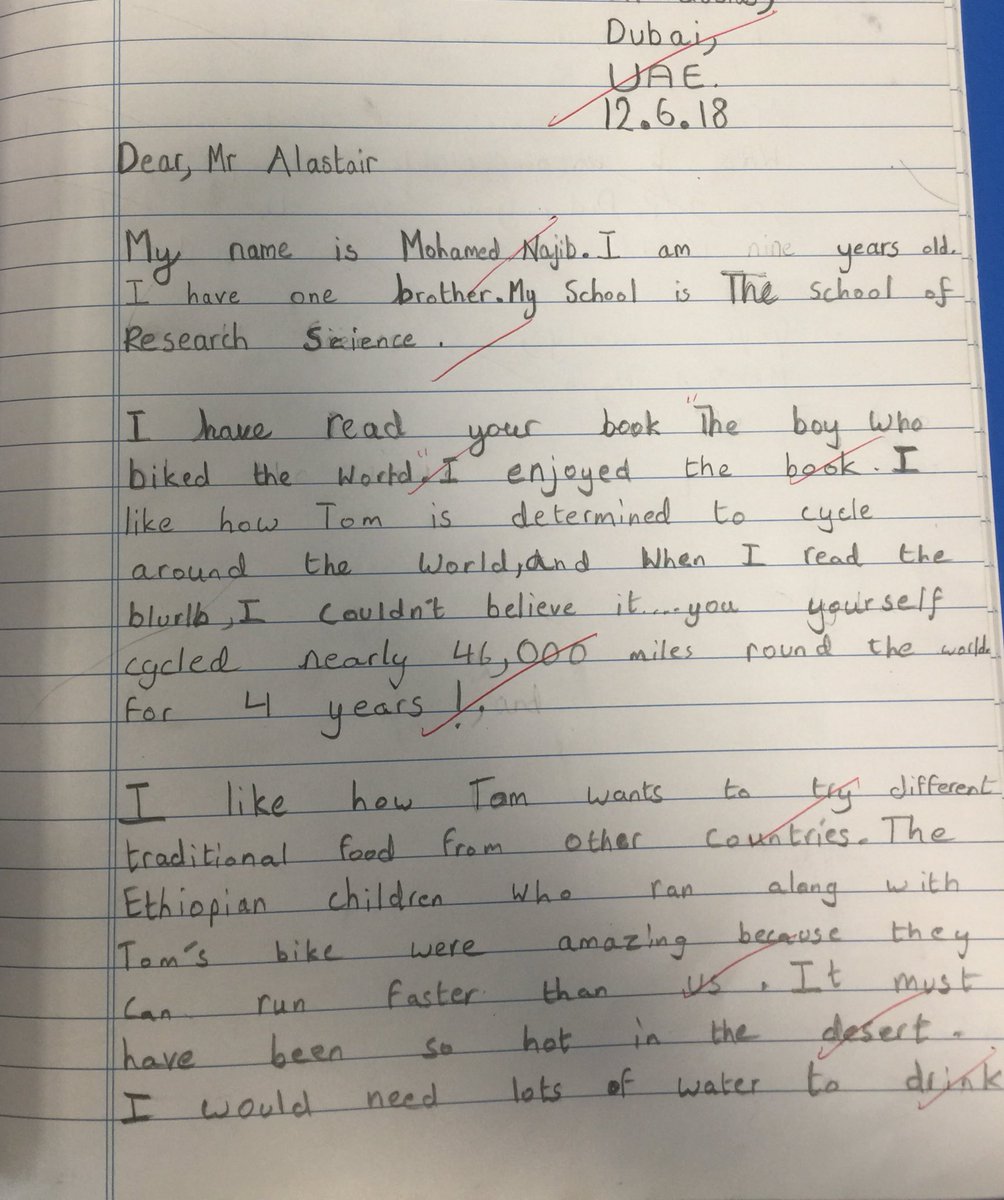 Dubai,
UAE.
12.6.18
Dear, Mr Alastair
My name is Mohamed Najib. I am nine years old.
I have one brother. My School is The school of
Research Science.
I have read your book "The boy who
biked the World." I enjoyed the book. I
like how Tom is determined to cycle
around the World, and When I read the
blurb, I Couldn't believe it....you yourself
cycled nearly 46,000 miles round the world
for 4 years!.
I like how Tom wants to try different
traditional food from other countries. The
Ethiopian children who ran along with
Tom's bike were amazing because they
Can run faster than us. It must
have been so hot in the desert.
I would need lots of water to drink